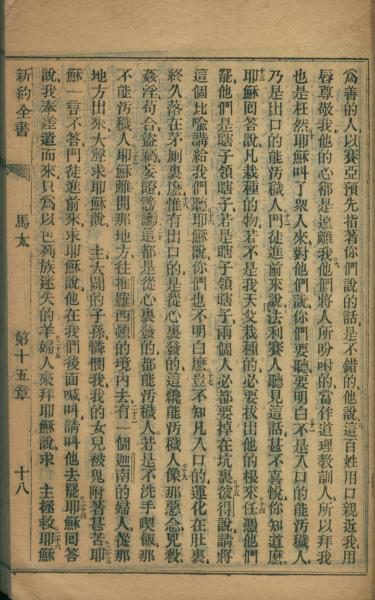 爲善的人以賽亞預先指著你們說的話是不錯的他說這百姓用口親近我用
唇尊敬我他的心卻是遠離我他們將人所吩咐的當作道理敎訓人所以拜我
也是枉然耶穌叫了衆人來對他們說你們要聽要明白不是入口的能汚穢人
乃是出口的能汚穢人門徒進前來說法利賽人聽見這話甚不喜悅你知道麽
耶穌回答說凡栽種的物若不是我天父栽種的必要拔出他的根來任憑他們
罷他們是瞎子領瞎子若是瞎子領瞎子兩個人必都要掉在坑裏彼得說請將
這個比喩講給我們聽耶穌說你們也不明白麽豈不知凡入口的運化在肚裏
終久落在茅厠裏麽惟有出口的是從心裏發的這纔能汚穢人像那惡念兇殺
姦淫苟合盜竊妄證謗讟這都是從心裏發的都能汚穢人若是不洗手喫飯那
不能汚穢人耶穌離開那地方往推羅西頓的境內去有一個迦南的婦人從那
地方出來大聲求耶穌說主大闢的子孫憐憫我我的女兒被鬼附著甚苦耶
穌一言不答門徒進前來求耶穌說他在我們後面喊叫請叫他去罷耶穌回答
說我奉差遣而來只爲以色列族迷失的羊婦人來拜耶穌說求主拯救耶穌
新約全書 馬太 第十五章 十八